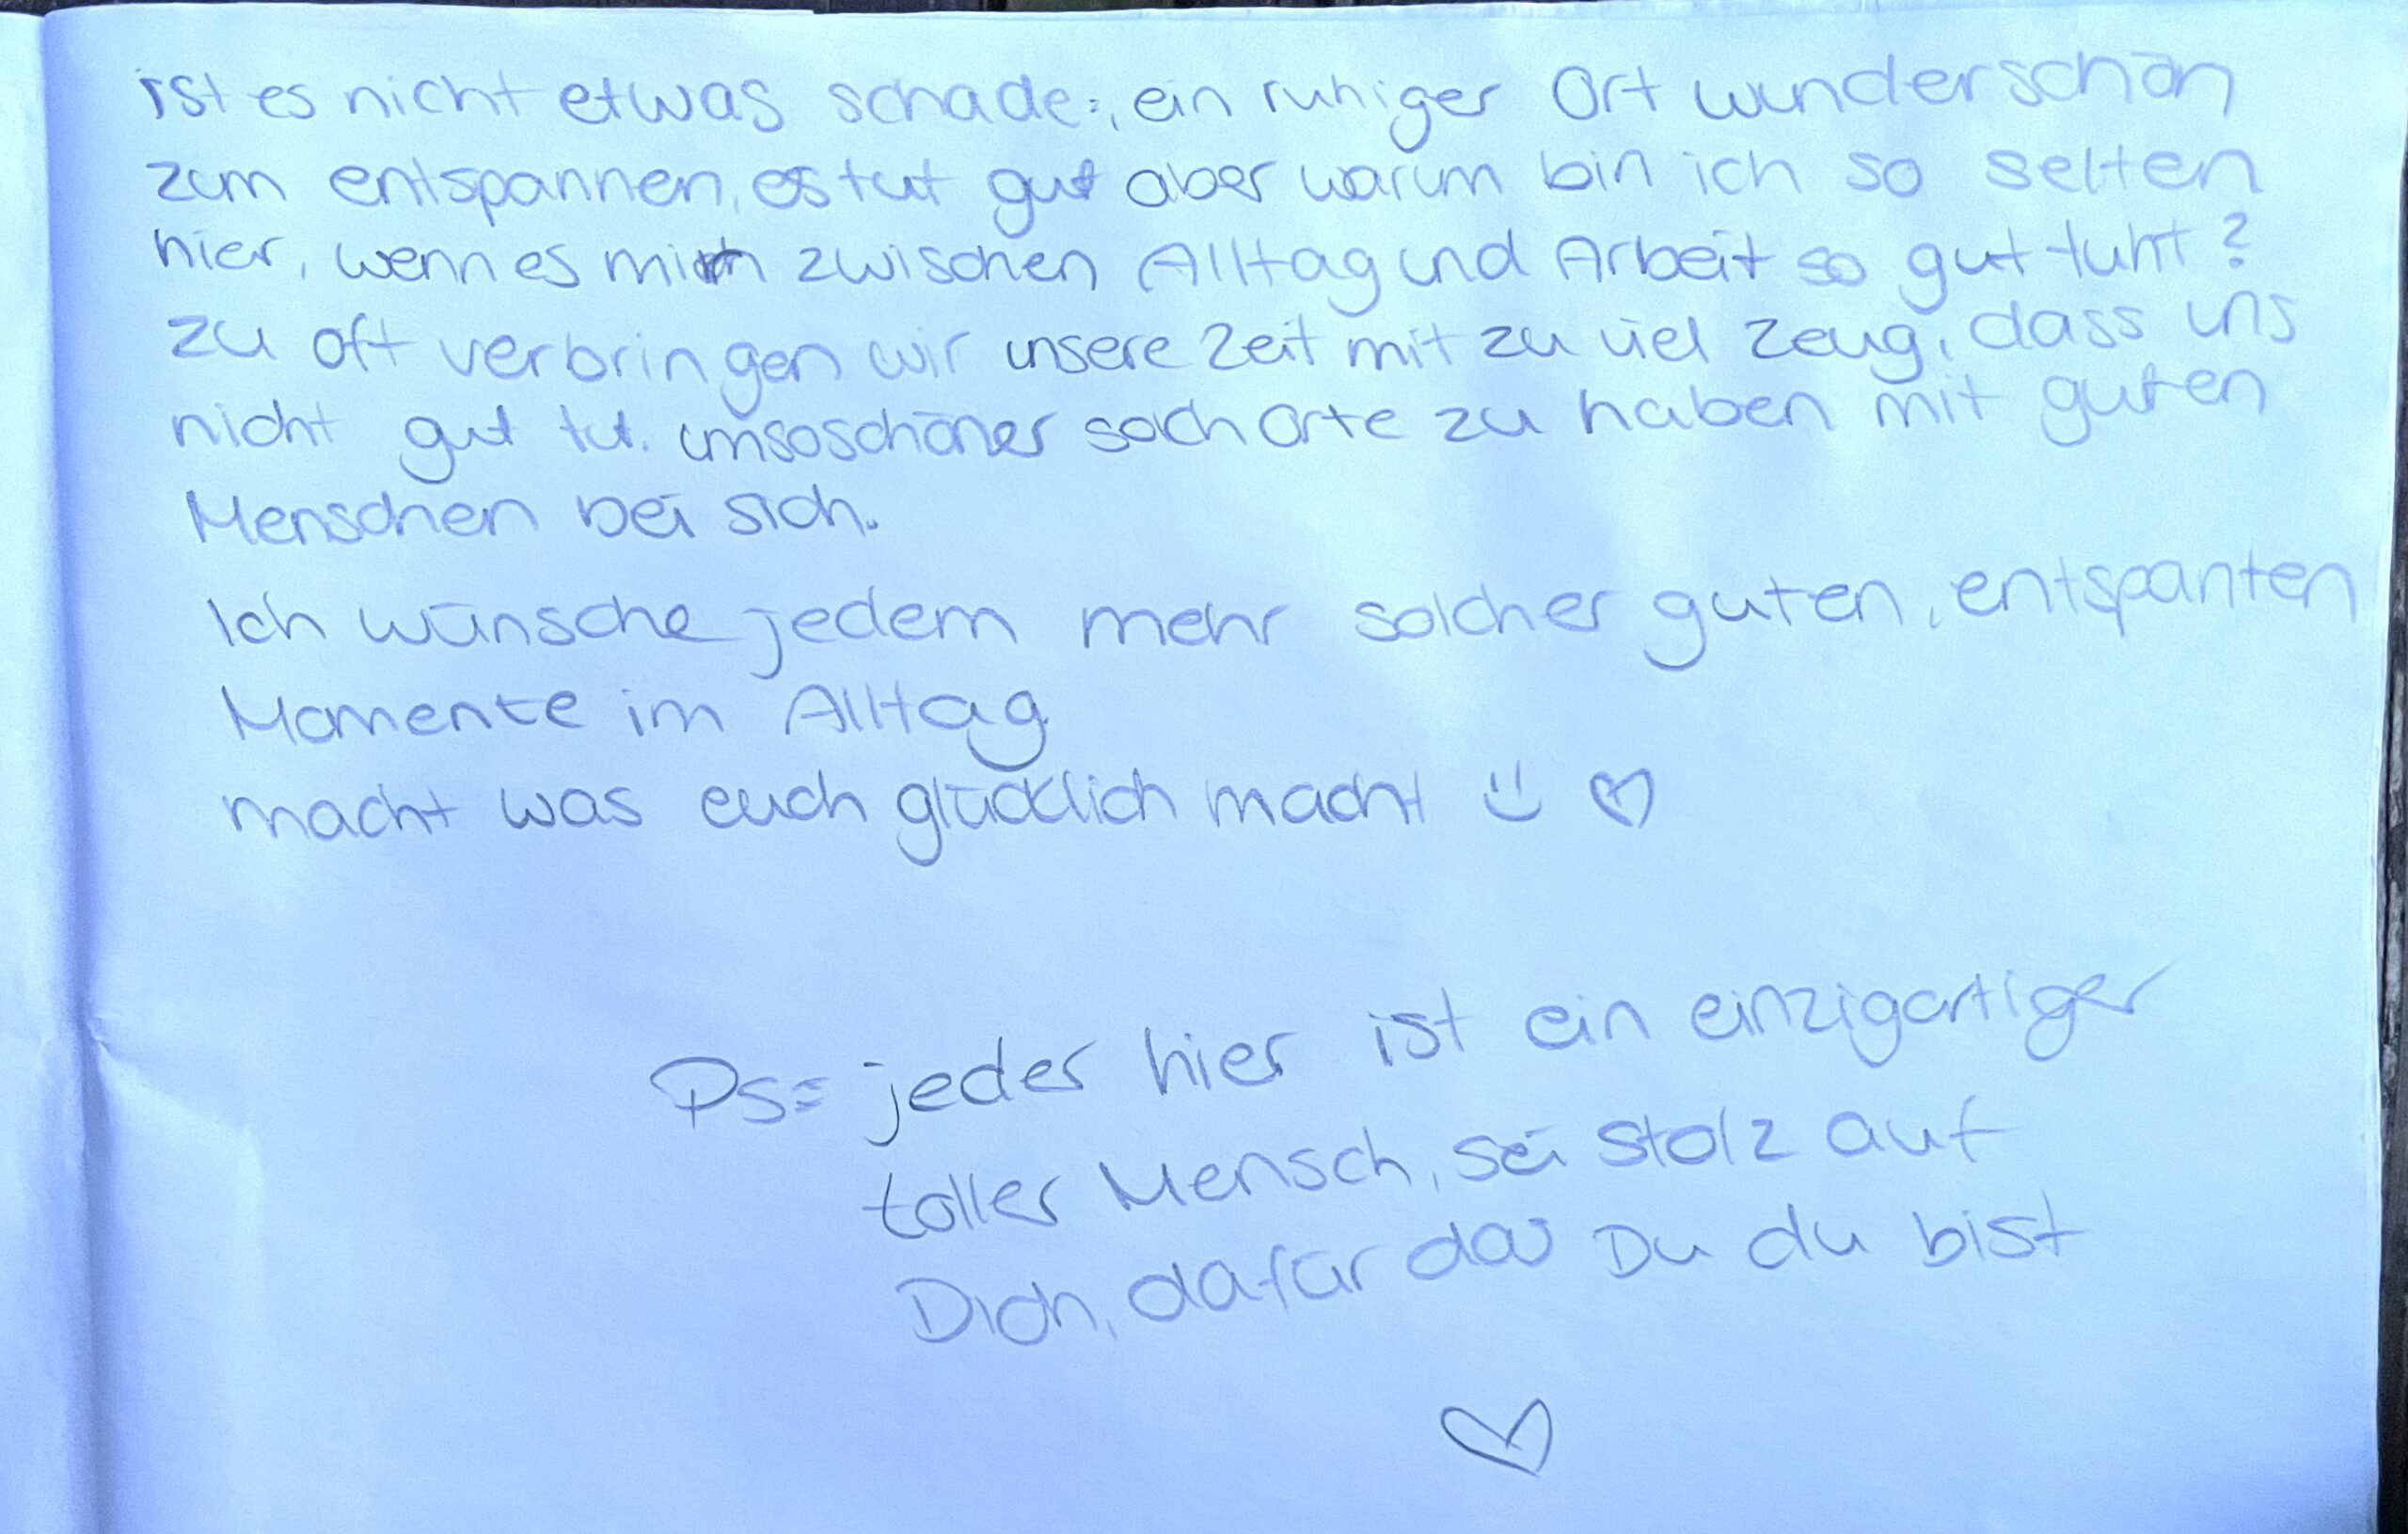 ist es nicht etwas schade:, ein ruhiger Ort wunderschön
zum entspannen, es tut gut aber warum bin ich so selten
hier, wenn es mich zwischen Alltag und Arbeit so gut tuht?
zu oft verbringen wir unsere Zeit mit zu viel Zeug, dass uns
nicht gut tut. umsoschöner solch Orte zu haben mit guten
Menschen bei sich.
Ich wünsche jedem mehr solcher guten, entspanten
Momente im Alltag
macht was euch glücklich macht :) ♡
Ps: jeder hier ist ein einzigartiger
toller Mensch, sei stolz auf
Dich, dafür das Du du bist
♡